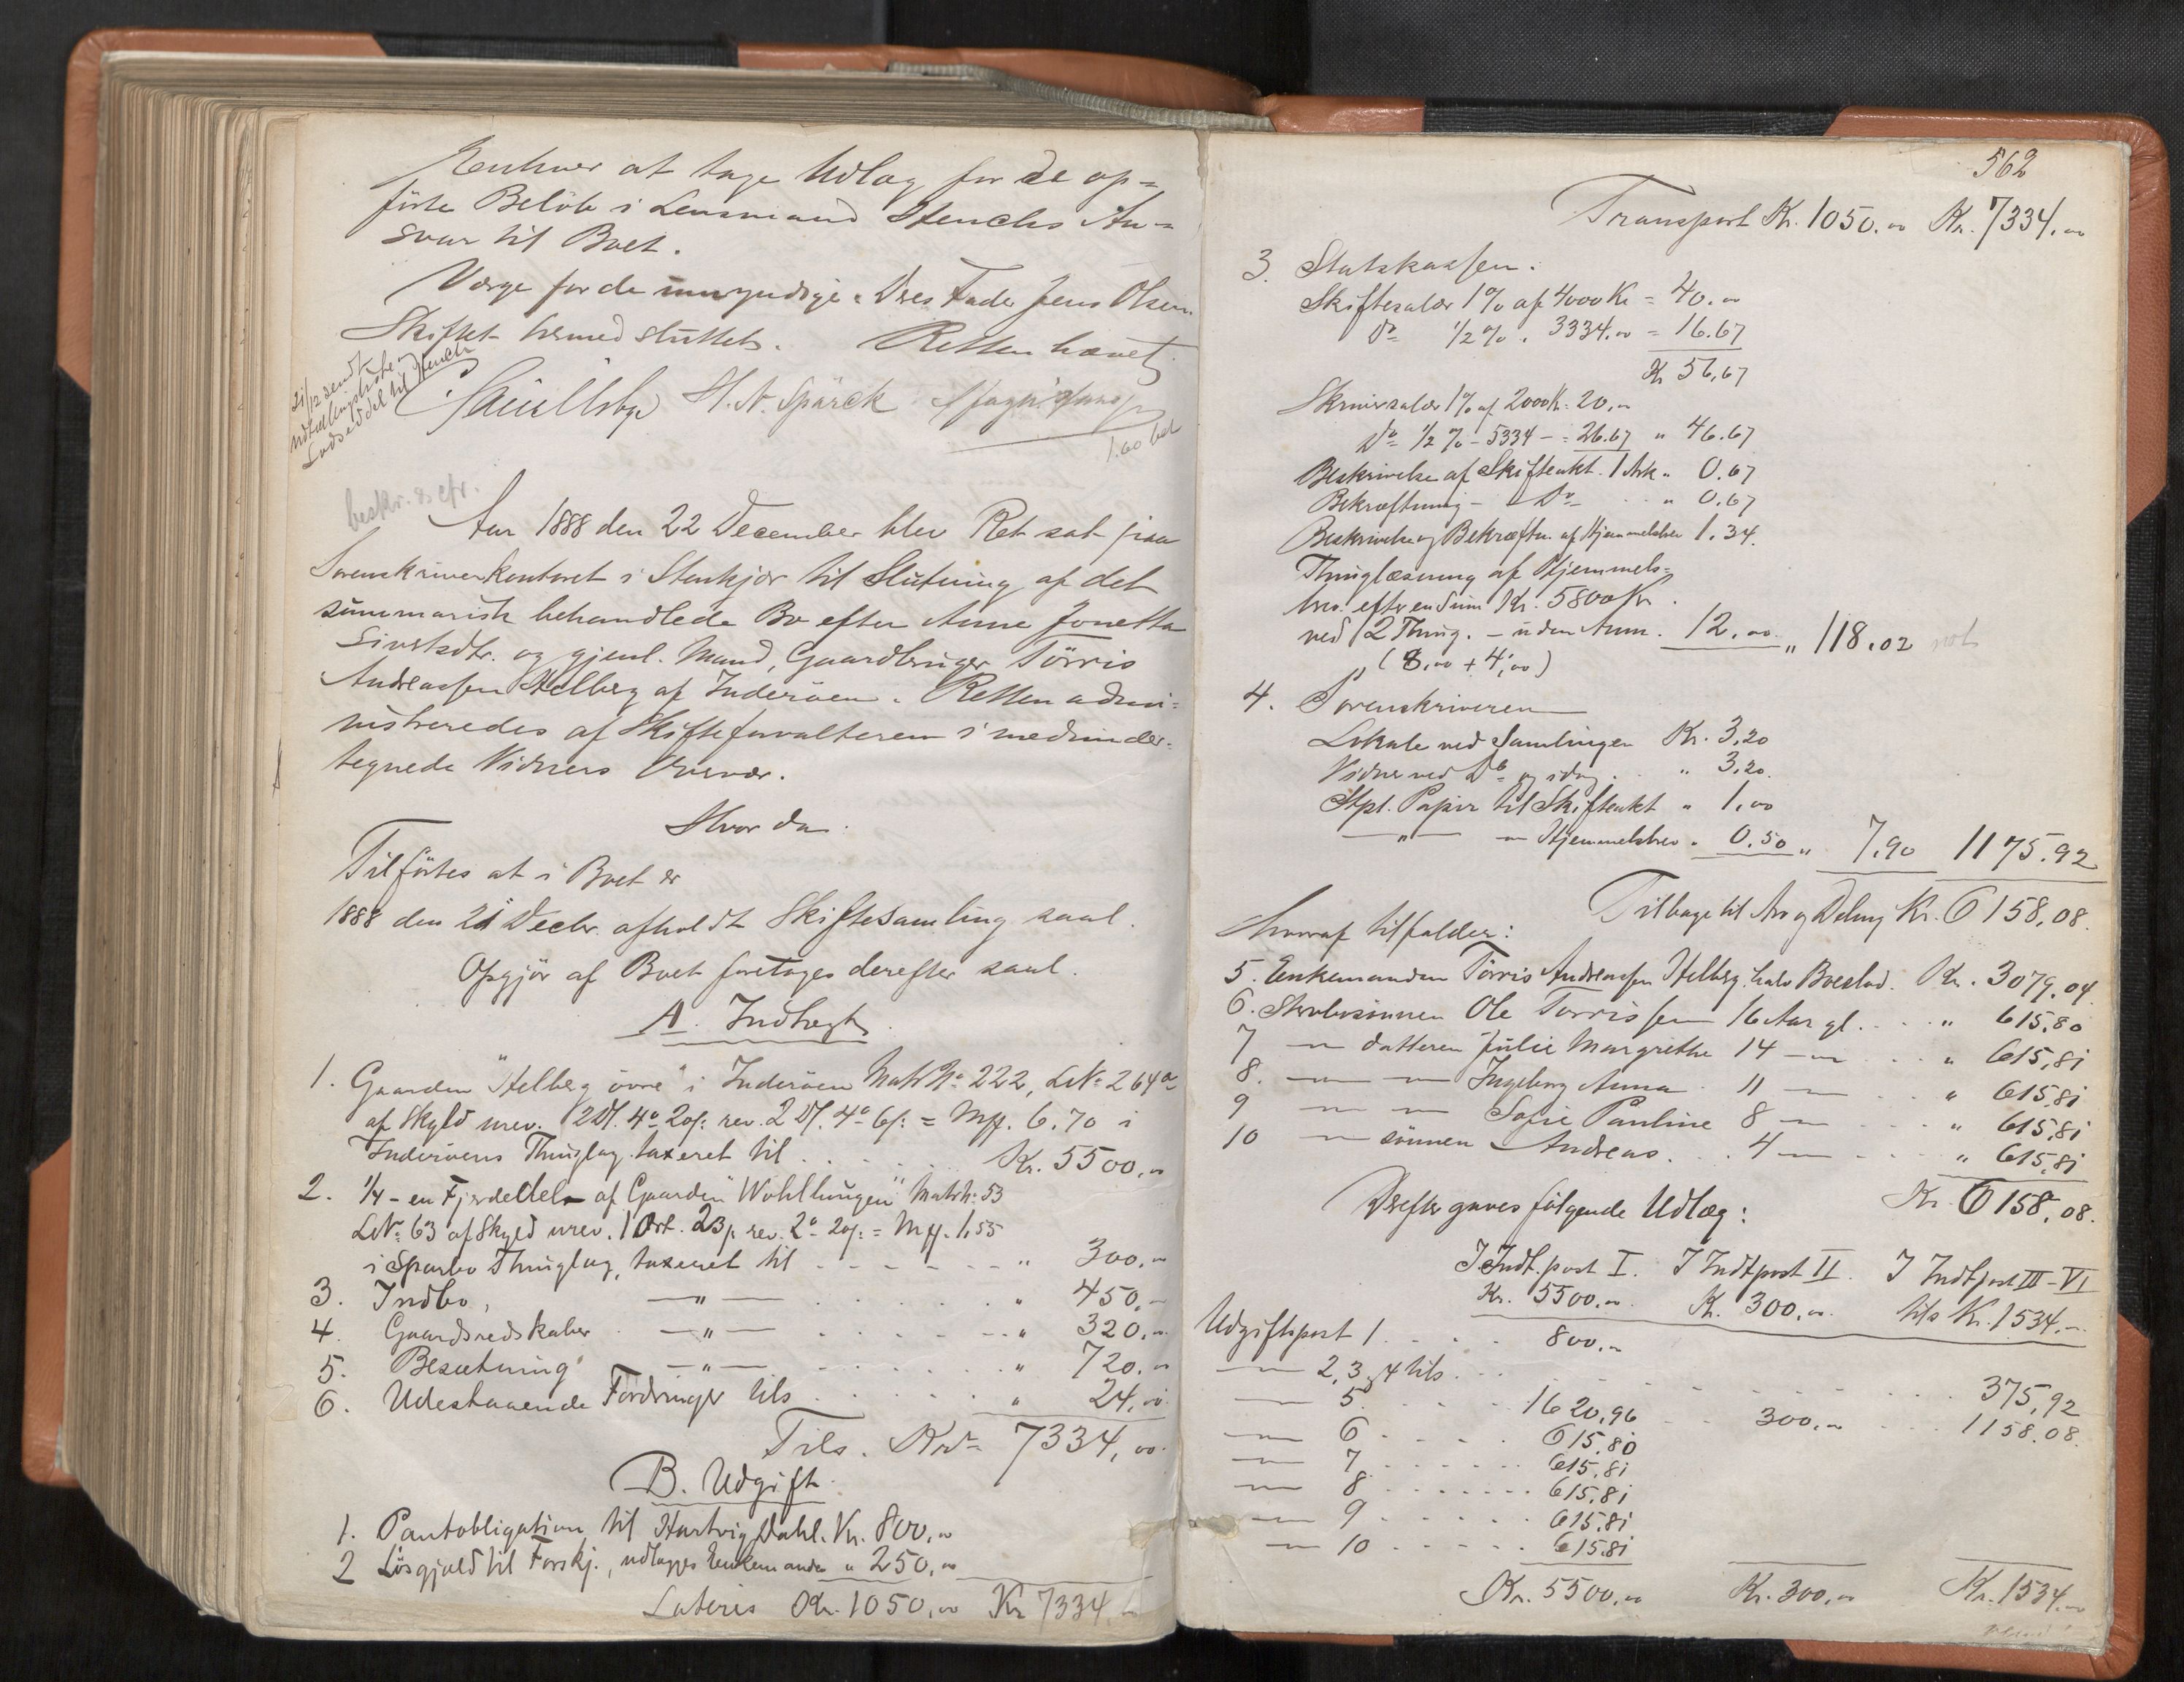 Renhver at tage Udlag for de op=
förte Beløb i Lensmand Stenchs An=
svar til Boet.
Værge for de umyndige: Deres Fader Jens Olsen
Skiftet hermed sluttet. Retten hævet.
21/12 sendt
udtællingsliste
Lodseddel til Stench
H. N. Spärck
1.60 bet
beskr. & cfr.
Aar 1888 den 22 December blev Ret sat paa
Sorenskriverkontoret i Stenkjær til Slutning af det
summarisk behandlede Bo efter Anne Jonetta
Sivertsdtr. og gjenl. Mand, Gaardbruger Törris
Andreassen Helberg af Inderöen. Retten admi=
nistreredes af Skifteforvalteren i medunder=
tegnede Vidners Overvær.
Hvor da.
Tilförtes at i Boet er
1888 den 21 Decbr. afholdt Skiftesamling saal.
Opgjör af Boet foretoges derefter saal.
A. Indtægt.
1. Gaarden "Helberg övre" i Inderöen Matr No 222, LNo 264a
af Skyld urev. 2 Dl. 4o 20/: rev. 2 Dl. 4o 6/: = Mk. 6.70 i
Inderöens Thinglag taxeret til . . . . Kr. 5500,00
2. 1/4 - en Fjerdedel - af Gaarden "Wohllungen" Matr No 53
LNo 63 af Skyld urev. 1 Ort. 23/: rev. 2o 20/: = Mk. 1.55
i Sparbo Thinglag, taxeret til - - - - - " 300,00
3. Indbo, —"— . . . . . " 450,00
4. Gaardsredskaber —"— . . . . " 320,00
5. Besætning —"— . . . . " 720,00
6. Udestaaende Fordringer tils . . . . " 24,00
Tils. Kr. 7334,00
B. Udgift
1. Pantobligation til Hartvig Dahl. Kr. 800,00
2 Løsgjæld til Forskj., udlægges Enkemanden " 250,00
Lateris Kr. 1050,00 Kr 7334,00
562
Transport Kr. 1050.00 Kr. 7334.00
3. Statskassen:
Skiftesalær 1% af 4000 Kr = 40.00
Do 1/2% " 3334.00 = 16.67
Kr 56,67
Skriversalær 1% af 2000 Kr. 20.00
Do 1/2 % - 5334 - = 26.67 " 46.67
Beskrivelse af Skifteakt. 1 Ark " 0.67
Bekræftning - Do . . " 0.67
Beskrivelse og Bekræftn. af Hjemmelsbrev 1.34.
Thinglæsning af Hjemmels=
brev. efter en Sum Kr. 5800 Kr.
ved 2 Thing. - uden Anm. 12,00 " 118.02
(8,00 + 4,00)
4. Sorenskriveren
Lokale ved Samlingen Kr. 3,20
Vidner ved Do og idag . . " 3,20.
Stpl. Papir til Skifteakt " 1,00
—"— — Hjemmelsbrev " 0.50 " 7,90 1175.92
Tilbage til Arv og Deling Kr. 6158,08.
Hvoraf tilfalder:
5. Enkemanden Törris Andreassen Helberg halv Boeslod. Kr. 3079.04.
6. Stervbosönnen Ole Torrissen 16 Aar gl. . . . " 615,80
7 — datteren Julie Margrethe 14 — . . . " 615,81
8. — — Ingeborg Anna . 11 — . . . " 615,81
9 — — Sofie Pauline 8 — . . . . " 615,81
10 — sönnen Andreas . . . 4 — . . . . " 615,81
Kr. 6158,08.
Derefter gaves fölgende Udlæg:
I Indt. post I. I Indtpost II. I Indtpost III-VI
Kr. 5500,00. Kr. 300,00. tils Kr. 1534,00.
Udgiftspost 1 . . . . 800,00
— 2, 3, 4 tils . . . . . . . . . . 375,92
— 5. . . . . 1620,96 . . 300,00 . . . 1158.08.
— 6 . . . . . 615,80
— 7 . . . . . . 615,81
— 8 . . . . . . . 615,81
— 9 . . . . . . 615,81
— 10 . . . . . 615,81
Kr. 5500,00 Kr. 300,00 Kr. 1534,00